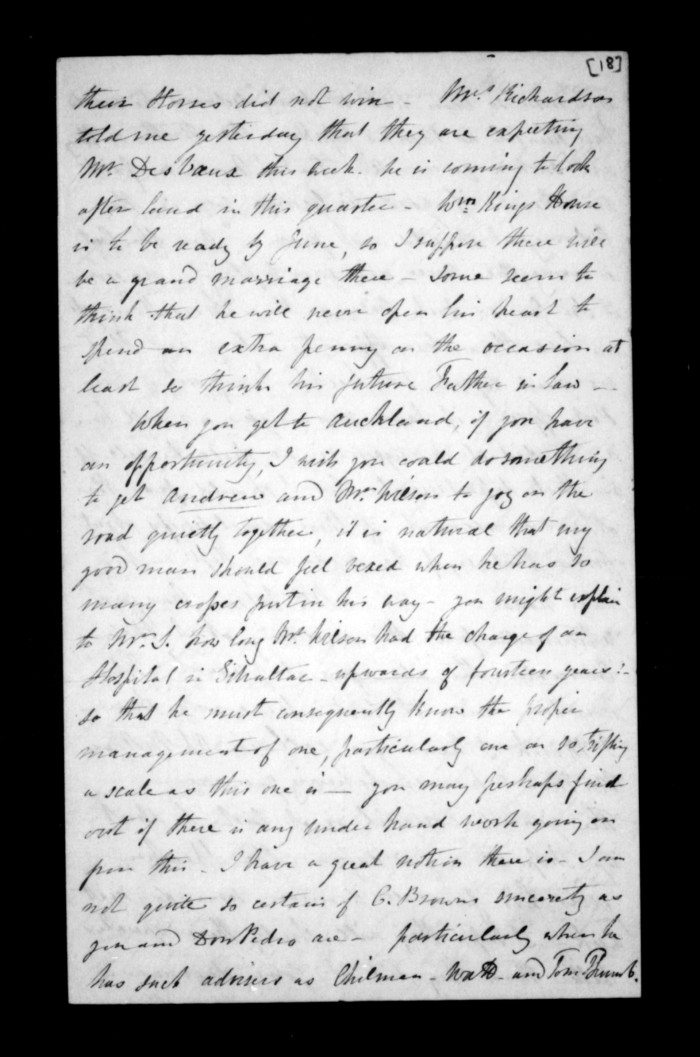 [18]
their Horses did not win - Mrs Richardson
told me yesterday that they are expecting
Mr Des Vaux this week. he is coming to look
after land in this quarter - Wm Kings House
is to be ready by June, so I suppose there will
be a grand marriage there - some seem to
think that he will never open his heart to
spend an extra penny on the occasion at
least so thinks his future Father in law -
When you get to Auckland, if you have
an opportunity, I wish you could do something
to get Andrew and Mr Wilson to jog on the
road quietly together, it is natural that my
good man should feel vexed when he has so
many crosses put in his way - you might explain
to Mr S. how long Mr Wilson had the charge of an
Hospital in Gibraltar - upwards of fourteen years! -
so that he must consequently know the proper
management of one, particularly one on so trifling
a scale as this one is - you may perhaps find
out if there is any under hand work going on
from this - I have a great notion there is - I am
not quite so certain of C. Browns sincerety as
you and Don Pedro are - particularly when he
has such advisers as Chilman - and Tom Thumb.